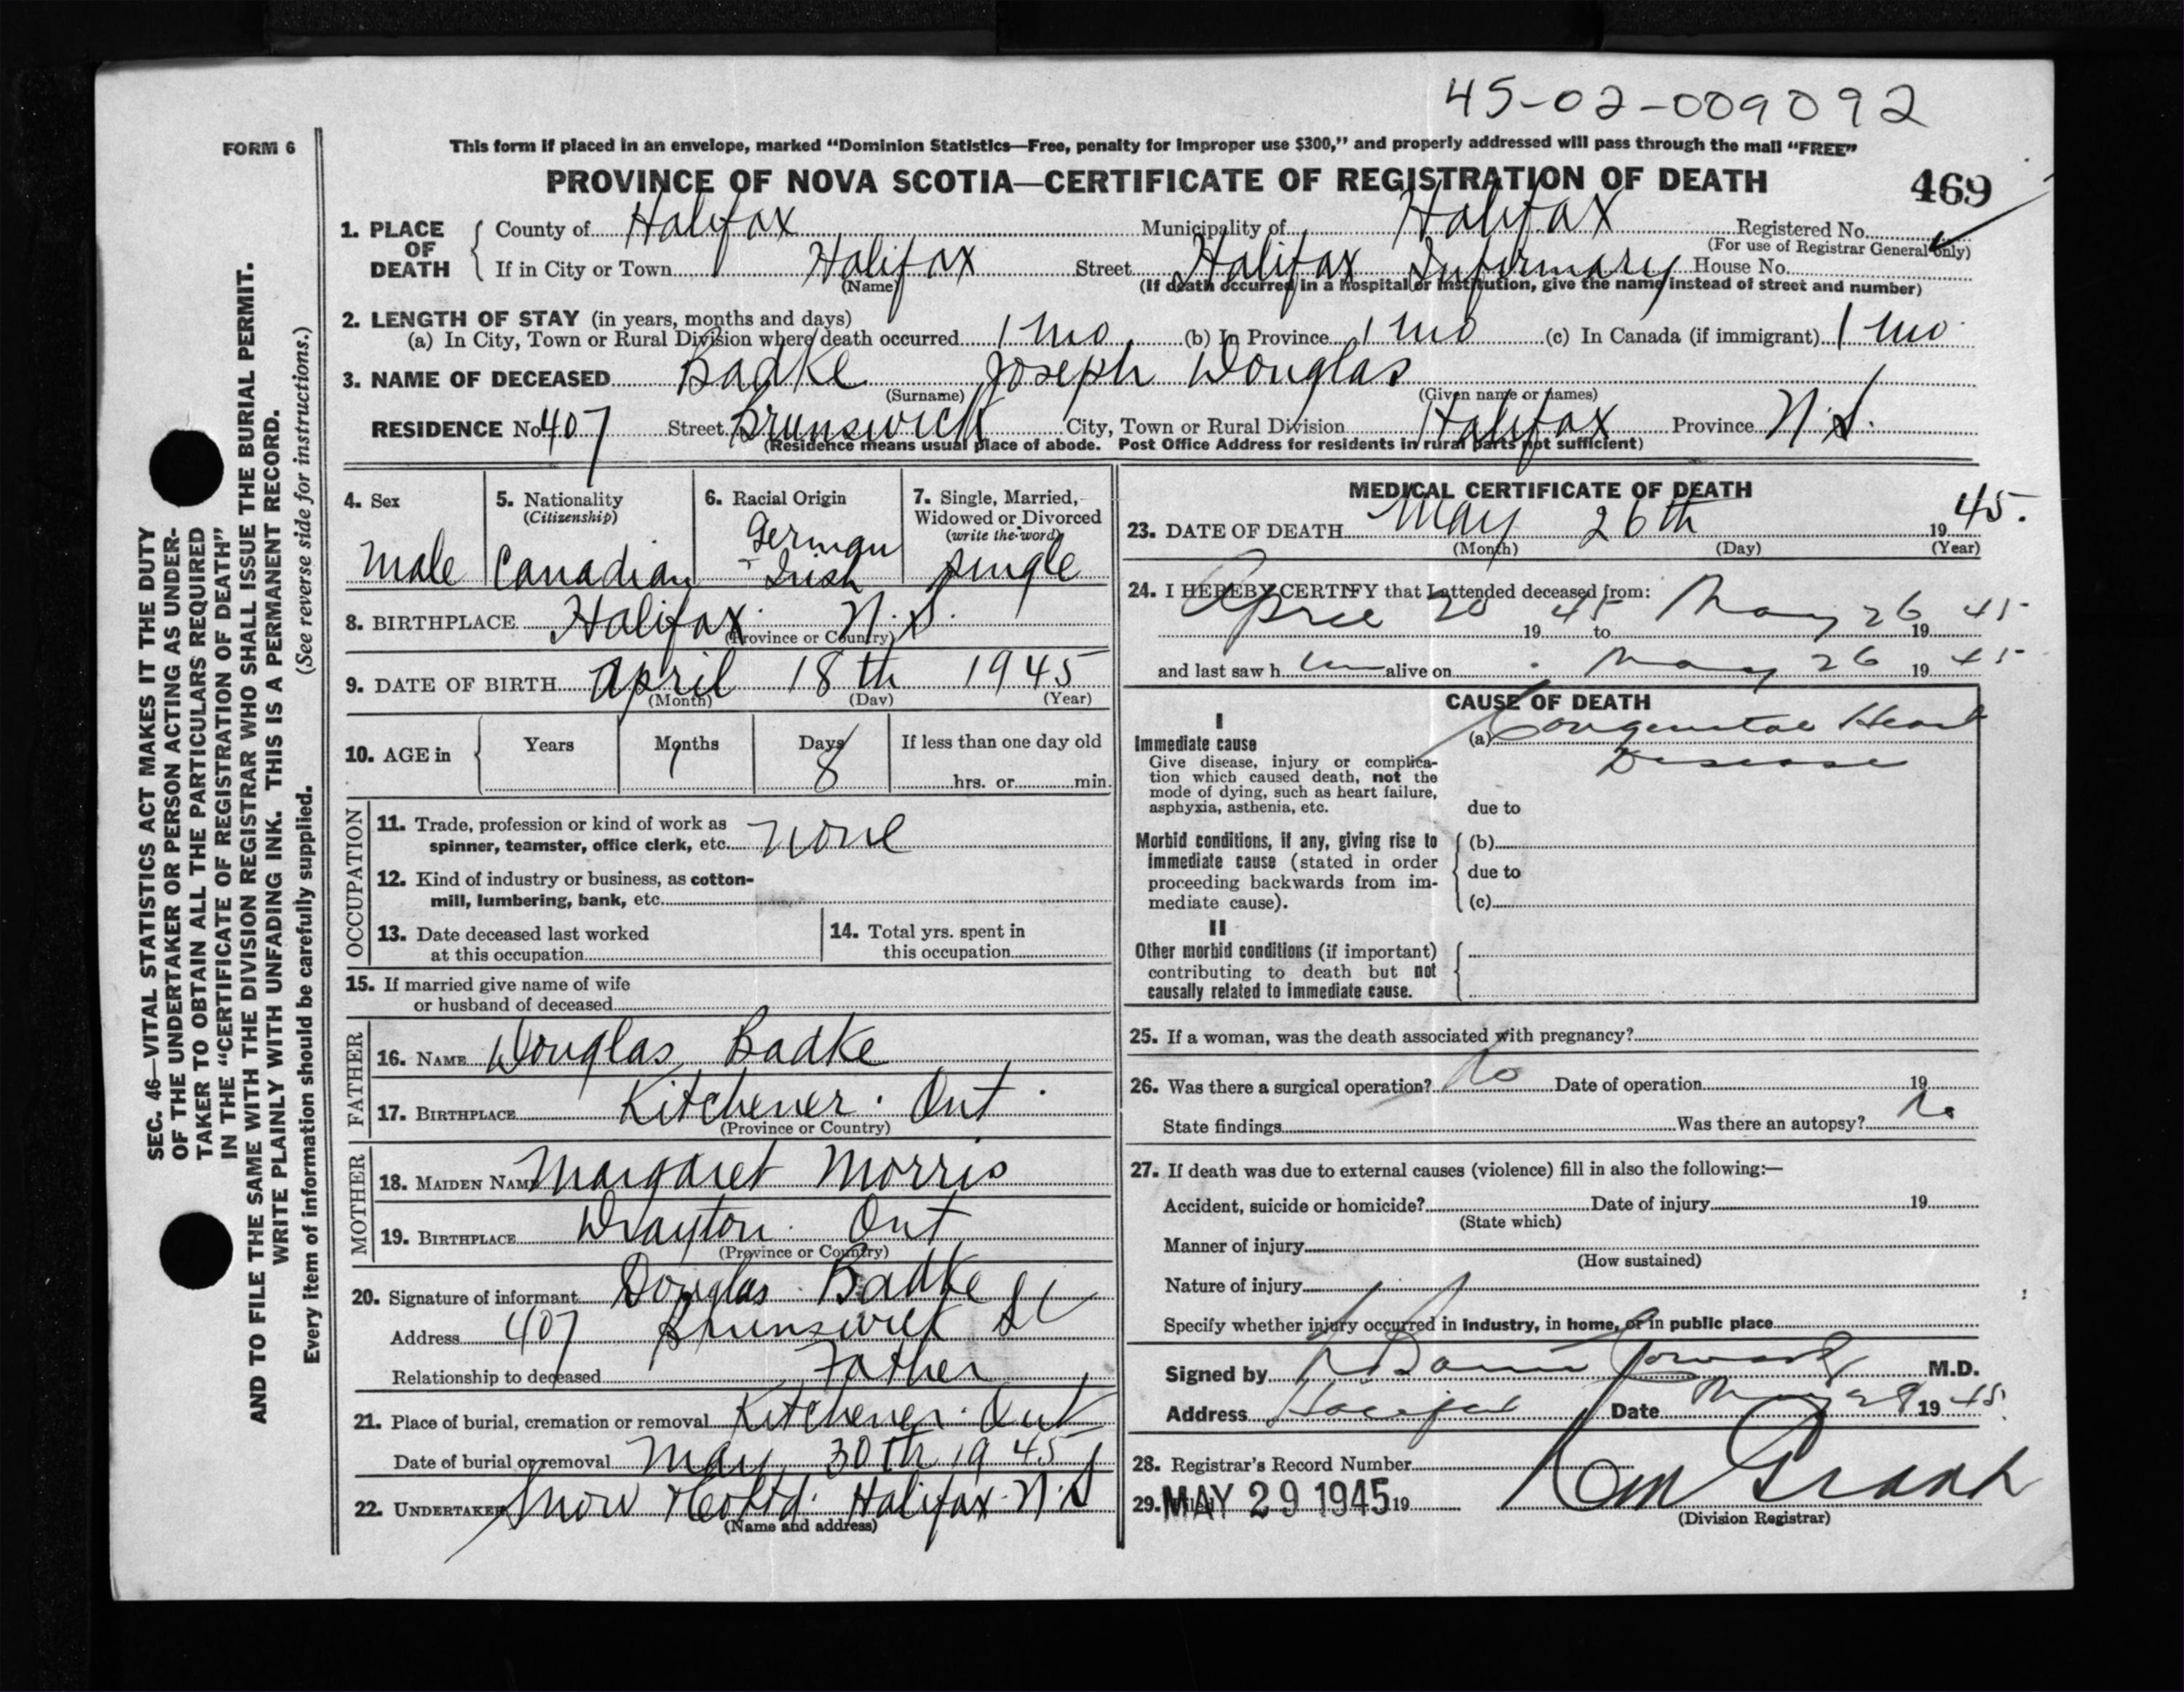 45-02-009092
FORM 6
This form if placed in an envelope, marked “Dominion Statistics—Free, penalty for improper use $300,” and properly addressed will pass through the mail “FREE”
PROVINCE OF NOVA SCOTIA—CERTIFICATE OF REGISTRATION OF DEATH
469
1. PLACE OF DEATH
County of Halifax Municipality of Halifax Registered No.
(For use of Registrar General only)
If in City or Town Halifax Street Halifax Infirmary House No.
(Name) (If death occurred in a hospital or institution, give the name instead of street and number)
2. LENGTH OF STAY (in years, months and days)
(a) In City, Town or Rural Division where death occurred 1 mo (b) In Province 1 mo (c) In Canada (if immigrant) 1 mo
3. NAME OF DECEASED Badke Joseph Douglas
(Surname) (Given name or names)
RESIDENCE No. 407 Street Brunswick City, Town or Rural Division Halifax Province N.S.
(Residence means usual place of abode. Post Office Address for residents in rural parts not sufficient)
4. Sex
Male
5. Nationality
(Citizenship)
Canadian
6. Racial Origin
German
Irish
7. Single, Married,
Widowed or Divorced
(write the word)
single
8. BIRTHPLACE Halifax N.S.
(Province or Country)
9. DATE OF BIRTH April 18th 1945
(Month) (Day) (Year)
10. AGE in
Years Months Days If less than one day old
1 8 hrs. or min.
OCCUPATION
11. Trade, profession or kind of work as
spinner, teamster, office clerk, etc. none
12. Kind of industry or business, as cotton-
mill, lumbering, bank, etc.
13. Date deceased last worked
at this occupation
14. Total yrs. spent in
this occupation
15. If married give name of wife
or husband of deceased
FATHER
16. NAME Douglas Badke
17. BIRTHPLACE Kitchener. Ont.
(Province or Country)
MOTHER
18. MAIDEN NAME Margaret Morris
19. BIRTHPLACE Drayton. Ont
(Province or Country)
20. Signature of informant Douglas Badke
Address 407 Brunswick St
Relationship to deceased Father
21. Place of burial, cremation or removal Kitchener. Ont
Date of burial or removal May 30th 1945
22. UNDERTAKER Snow & Co Ltd. Halifax. N.S
(Name and address)
MEDICAL CERTIFICATE OF DEATH
23. DATE OF DEATH May 26th 1945.
(Month) (Day) (Year)
24. I HEREBY CERTIFY that I attended deceased from:
April 20 1945 to May 26 1945
and last saw h im alive on May 26 1945
CAUSE OF DEATH
I
Immediate cause
Give disease, injury or complica-
tion which caused death, not the
mode of dying, such as heart failure,
asphyxia, asthenia, etc.
(a) Congenital Heart
Disease
due to
Morbid conditions, if any, giving rise to
immediate cause (stated in order
proceeding backwards from im-
mediate cause).
(b)
due to
(c)
II
Other morbid conditions (if important)
contributing to death but not
causally related to immediate cause.
25. If a woman, was the death associated with pregnancy?
26. Was there a surgical operation? No Date of operation 19
State findings Was there an autopsy? No
27. If death was due to external causes (violence) fill in also the following:—
Accident, suicide or homicide? Date of injury 19
(State which)
Manner of injury
(How sustained)
Nature of injury
Specify whether injury occurred in industry, in home, or in public place
Signed by M.D.
Address Halifax Date May 29 1945
28. Registrar's Record Number
29. MAY 29 1945 19
(Division Registrar)
SEC. 46—VITAL STATISTICS ACT MAKES IT THE DUTY
OF THE UNDERTAKER OR PERSON ACTING AS UNDER-
TAKER TO OBTAIN ALL THE PARTICULARS REQUIRED
IN THE “CERTIFICATE OF REGISTRATION OF DEATH”
AND TO FILE THE SAME WITH THE DIVISION REGISTRAR WHO SHALL ISSUE THE BURIAL PERMIT.
WRITE PLAINLY WITH UNFADING INK. THIS IS A PERMANENT RECORD.
Every item of information should be carefully supplied. (See reverse side for instructions.)